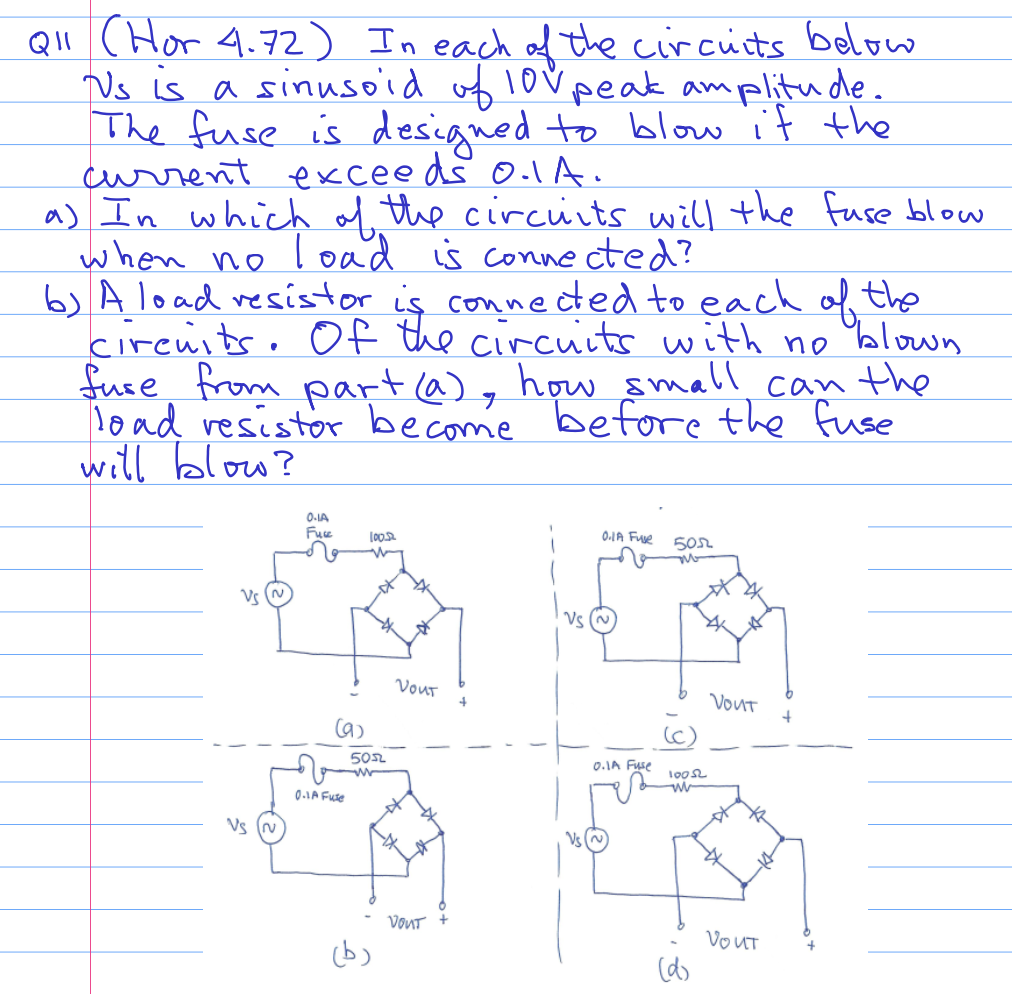 Q11 (Hor 4.72) In each of the circuits below
Vs is a sinusoid of 10V peak amplitude.
The fuse is designed to blow if the
current exceeds 0.1A.
a) In which of the circuits will the fuse blow
when no load is connected?
b) A load resistor is connected to each of the
circuits. Of the circuits with no blown
fuse from part (a), how small can the
load resistor become before the fuse
will blow?
0.1A
Fuse
100Ω
Vs
VOUT
-
+
(a)
0.1A Fuse
50Ω
Vs
VOUT
-
+
(c)
50Ω
0.1A Fuse
Vs
- VOUT +
(b)
0.1A Fuse
100Ω
Vs
- VOUT +
(d)